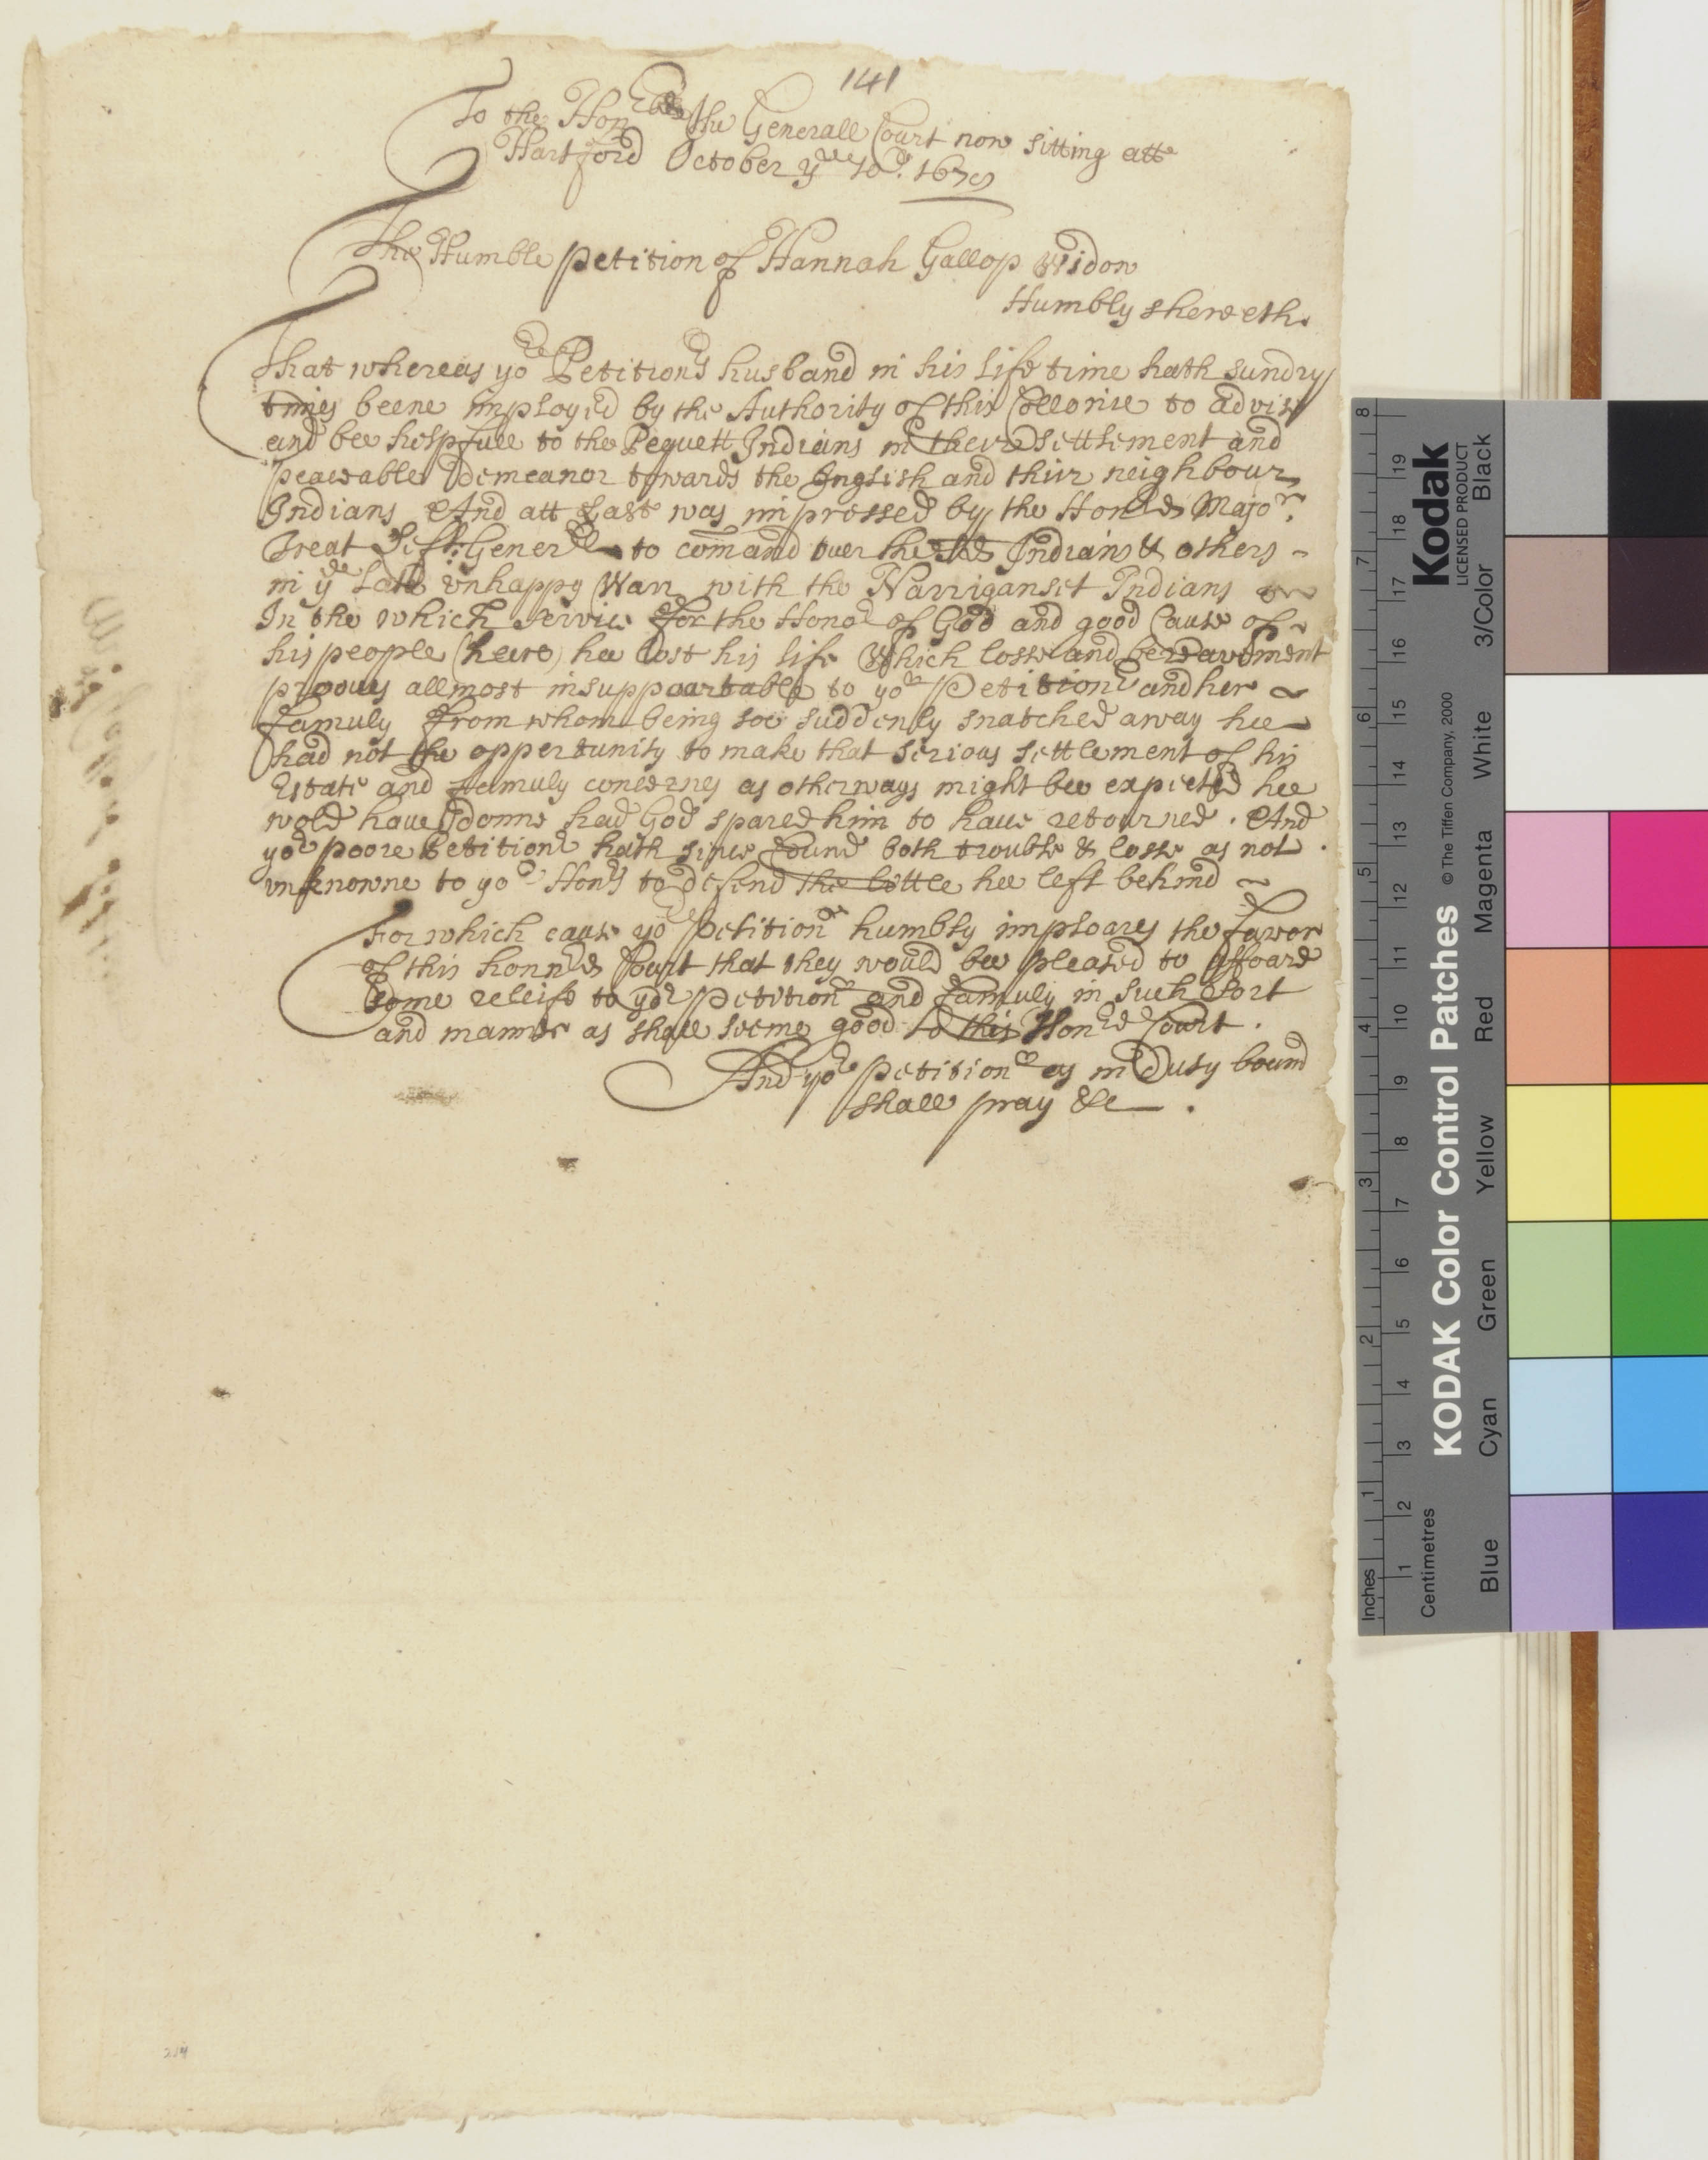 141
To the Honble the Generall Court now sitting att
Hartford October ye 10th: 167
The Humble Petition of Hannah Gallop Widow
Humbly sheweth
That whereas yor Petitionrs husband in his life time hath sundry
times beene imployed by the Authority of this Collonie to advise
and bee helpfull to the Pequett Indians in there settlement and
peaceable demeanor towards the Inglish and thier neighbour
Indians And att Last was impressed by the Honrd Major
Treat Lift: Generll to comand over the sd Indians & others
in ye Late unhappy Warr with the Narriganset Indians
In the which servic for the Honor of God and good Cause of
his people (heere) hee lost his life Which losse and bereavement
prooves allmost insuppourtable to yor Petitionr and her
famuly From whom being soe suddenly snatched away hee
had not the oppertunity to make that serious settlement of his
Estate and famuly concernes as otherways might bee expected hee
wold have donne had God spared him to have retourned. And
yor poore Petitionr hath since found both trouble & losse as not
unknowne to yor Honrs to defend the little hee left behind
For which cause yor Petitionr humbly imploares the favor
of this honnrd Court that they would bee pleased to affoard
some releife to yor petitionr and famuly in such sort
and manner as shall seeme good to this Honrd Court.
And yor petitionr as in Duty bound
shall pray &c.
214
Kodak
LICENSED PRODUCT
KODAK Color Control Patches
© The Tiffen Company, 2000
Black
3/Color
White
Magenta
Red
Yellow
Green
Cyan
Blue
Inches
1 2 3 4 5 6 7 8
Centimetres
1 2 3 4 5 6 7 8 9 10 11 12 13 14 15 16 17 18 19